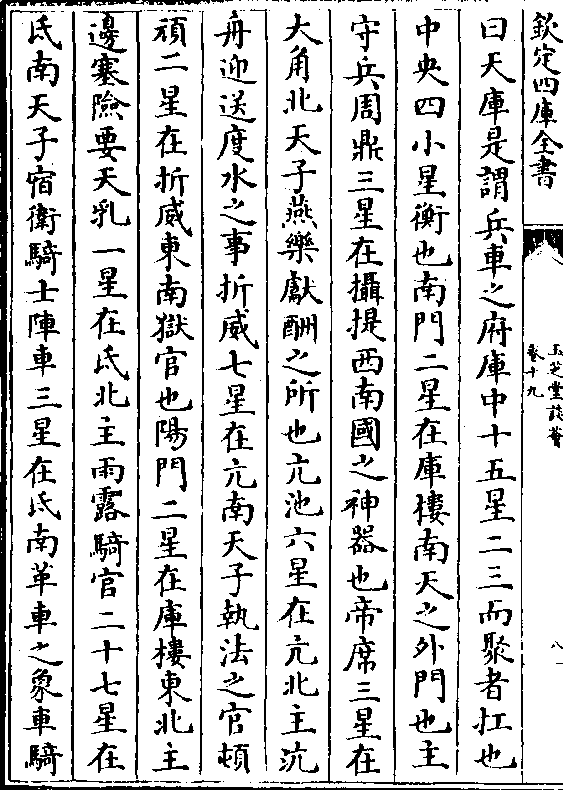 欽定四庫全書
玉芝堂談薈
卷十九
八
曰天庫是謂兵車之府庫中十五星二三而聚者扛也
中央四小星衡也南門二星在庫樓南天之外門也主
守兵周鼎三星在攝提西南國之神器也帝席三星在
大角北天子燕樂獻酬之所也亢池六星在亢北主沆
舟迎送度水之事折威七星在亢南天子執法之官頓
頑二星在折威東南獄官也陽門二星在庫樓東北主
邊塞險要天乳一星在氐北主雨露騎官二十七星在
氐南天子宿衛騎士陣車三星在氐南革車之象車騎